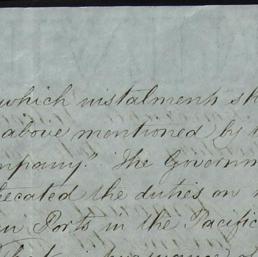 which instalments sh
above mentioned by t
mpany". The Governm
hecated the duties on
n Ports in the Pacific